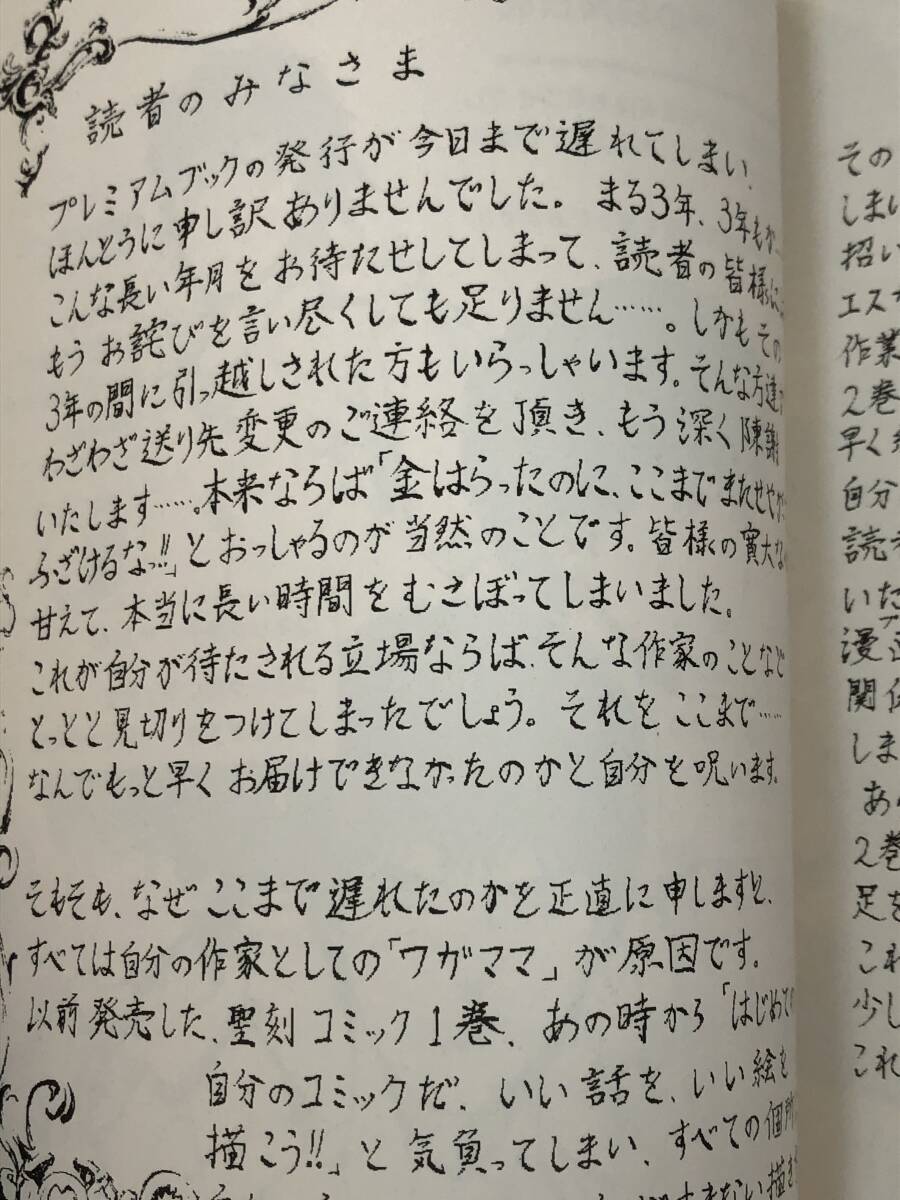 読者のみなさま
プレミアムブックの発行が今日まで遅れてしまい、
ほんとうに申し訳ありませんでした。まる3年、3年もか
こんな長い年月をお待たせしてしまって、読者の皆様に
もうお詫びを言い尽くしても足りません……。しかもその
3年の間に引っ越しされた方もいらっしゃいます。そんな方達
わざわざ送り先変更のご連絡を頂き、もう深く陳謝
いたします……。本来ならば「金はらったのに、ここまでまたせやが
ふざけるなっ!!」とおっしゃるのが当然のことです。皆様の寛大な
甘えて、本当に長い時間をむさぼってしまいました。
これが自分が待たされる立場ならば、そんな作家のことなど
とっとと見切りをつけてしまったでしょう。それをここまで……
なんでもっと早くお届けできなかったのかと自分を呪います。
そもそも、なぜここまで遅れたのかを正直に申しますと、
すべては自分の作家としての「ワガママ」が原因です。
以前発売した、聖刻コミック1巻、あの時から「はじめての
自分のコミックだ、いい話を、いい絵を
描こう!!」と気負ってしまい、すべての個所
その
しまい
招い
エスカ
作業
2巻
早く
自分
読者
いた
漫画
関係
しま
あ
2巻
足を
これ
少し
これ